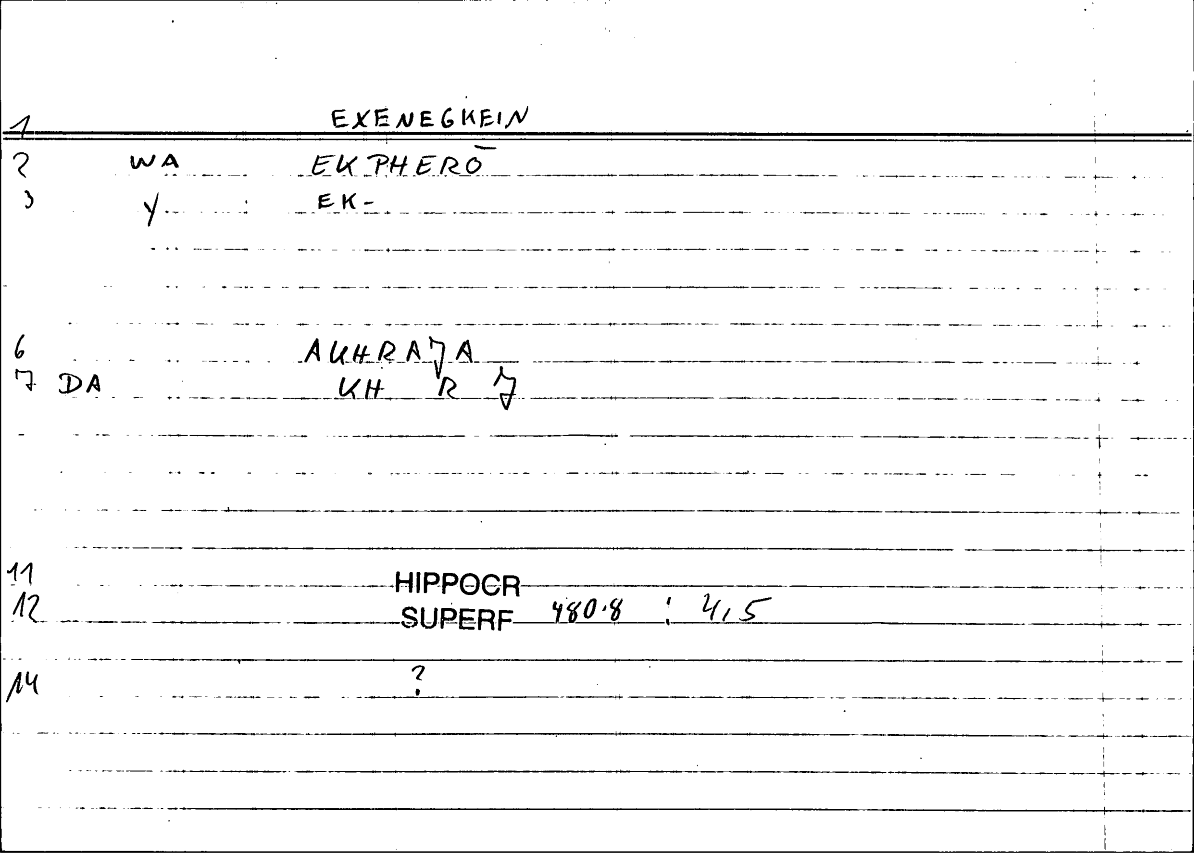 1 EXENEGKEIN
2 WA EKPHERŌ
3 Y : EK-
6 AKHRAJA
7 DA KH R J
11 HIPPOCR
12 SUPERF 480.8 : 4,5
14 ?